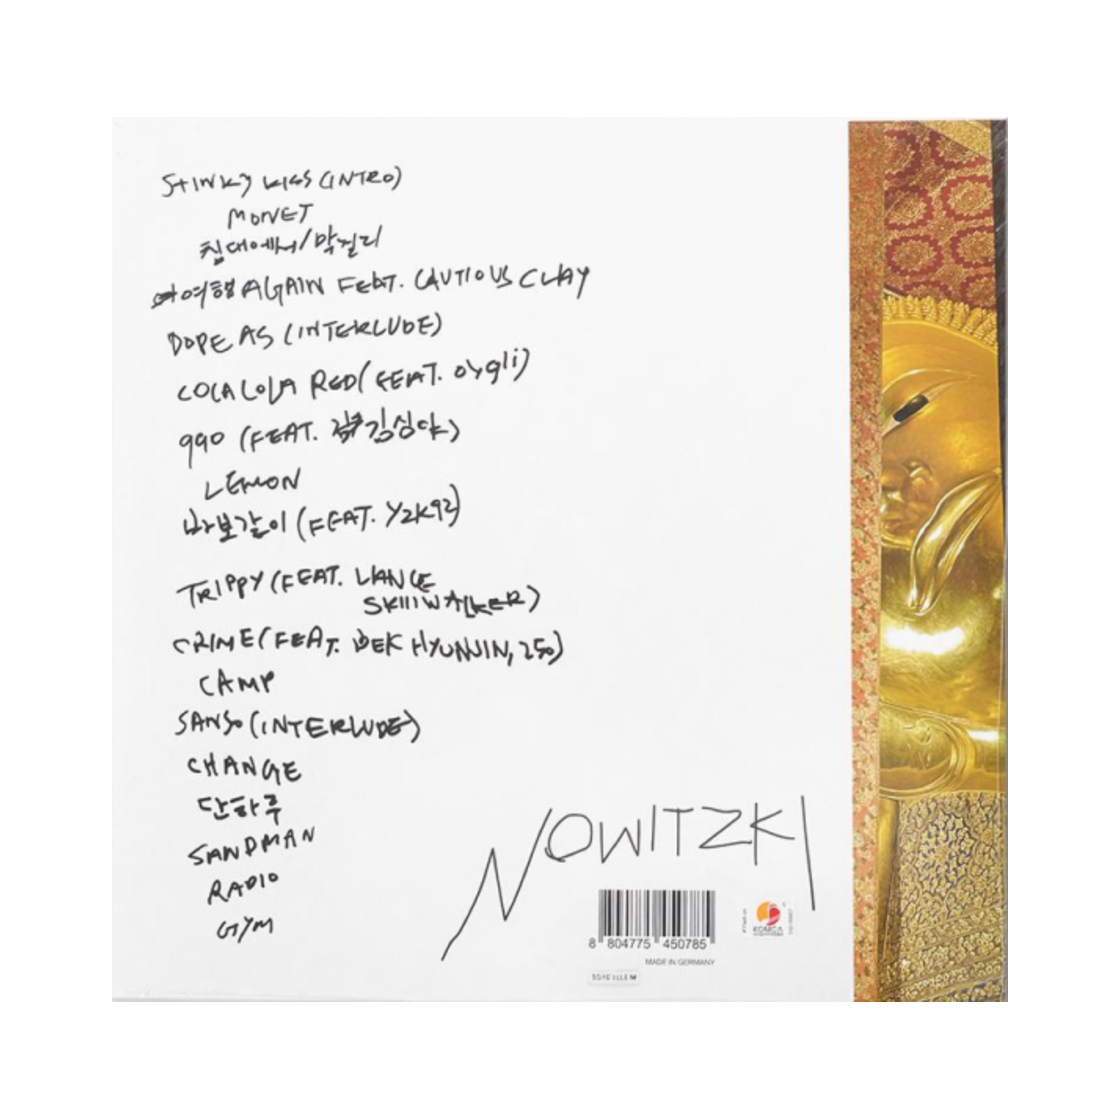 STINKY KISS (INTRO)
MONET
침대에서/막걸리
여행 AGAIN FEAT. CAUTIOUS CLAY
DOPE AS (INTERLUDE)
COCA COLA RED (FEAT. OYGLI)
990 (FEAT. 김심야)
LEMON
바보같이 (FEAT. YZK92)
TRIPPY (FEAT. LIANCE
SKIIIWALKER)
CRIME (FEAT. BEK HYUNJIN, 250)
CAMP
SANSO (INTERLUDE)
CHANGE
단하루
SANDMAN
RADIO
GYM
NOWITZKI
8 804775 450785
KOMCA
MADE IN GERMANY